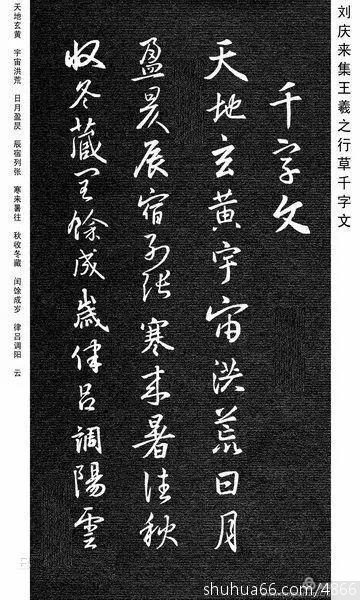 刘庆来集王羲之行草千字文
千字文
天地玄黄宇宙洪荒日月
盈昃辰宿列张寒来暑往秋
收冬藏闰馀成岁律吕調陽雲
天地玄黄 宇宙洪荒 日月盈昃 辰宿列张 寒来暑往 秋收冬藏 闰馀成岁 律吕调阳 云
shuhua66.com/4866